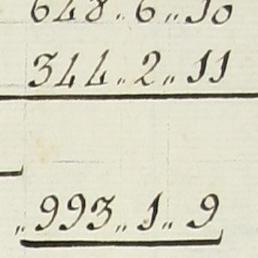 648 ,, 6 ,, 10
344 ,, 2 ,, 11
,, 993 ,, 1 ,, 9